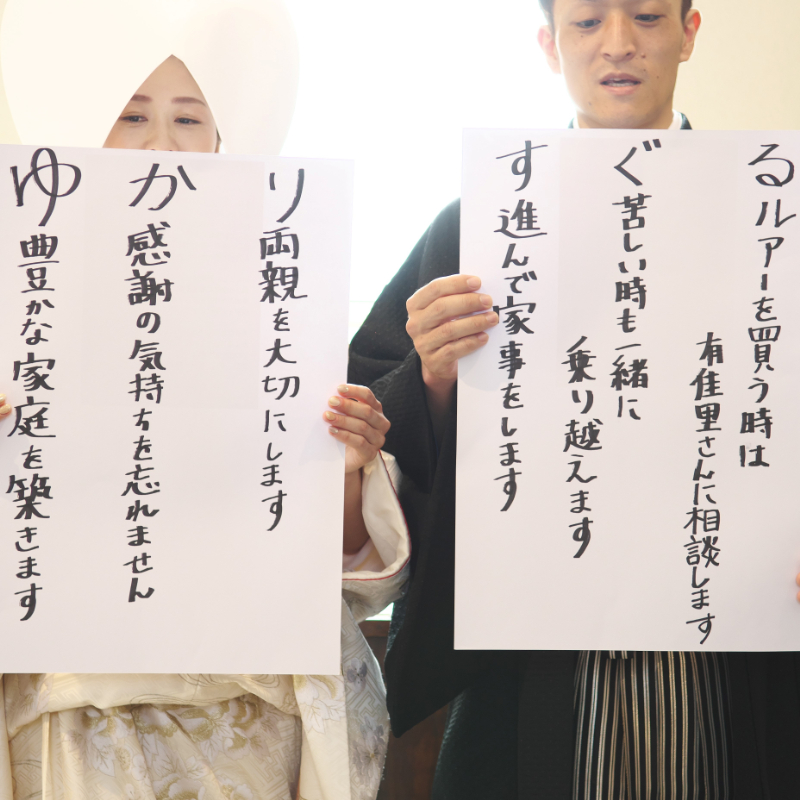 ゆ豊かな家庭を築きます
か感謝の気持ちを忘れません
り両親を大切にします
す進んで家事をします
ぐ苦しい時も一緒に
乗り越えます
るルアーを買う時は
有佳里さんに相談します